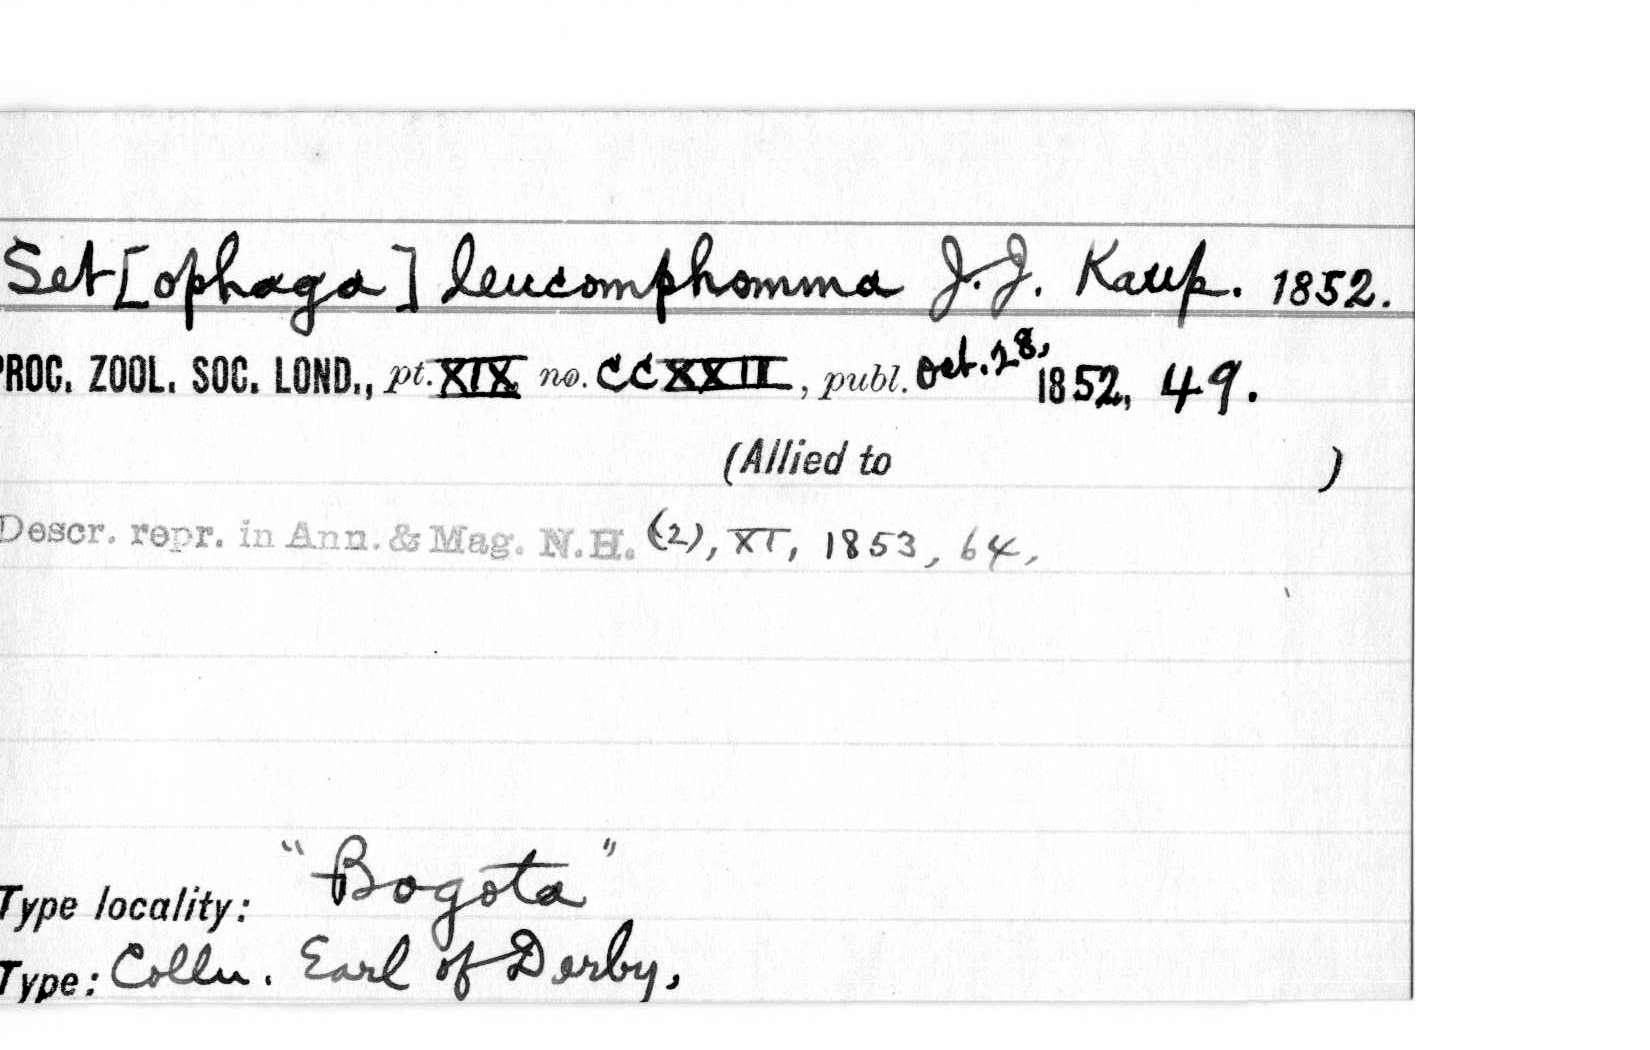 Set[ophaga] leucomphomma J.J. Kaup. 1852.
PROC. ZOOL. SOC. LOND., pt. XIX no. CCXXII, publ. Oct. 28, 1852, 49.
(Allied to )
Descr. repr. in Ann. & Mag. N.H. (2), XI, 1853, 64,
Type locality: "Bogota"
Type: Colln. Earl of Derby,